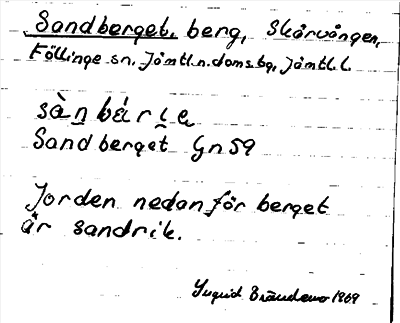 Sandberget, berg, Skärvången,
Föllinge sn, Jämtl.n.domsbg, Jämtl.l.
sàn bér ɩe
Sandberget Gn 59
Jorden nedanför berget
är sandrik.
Ingrid 1969